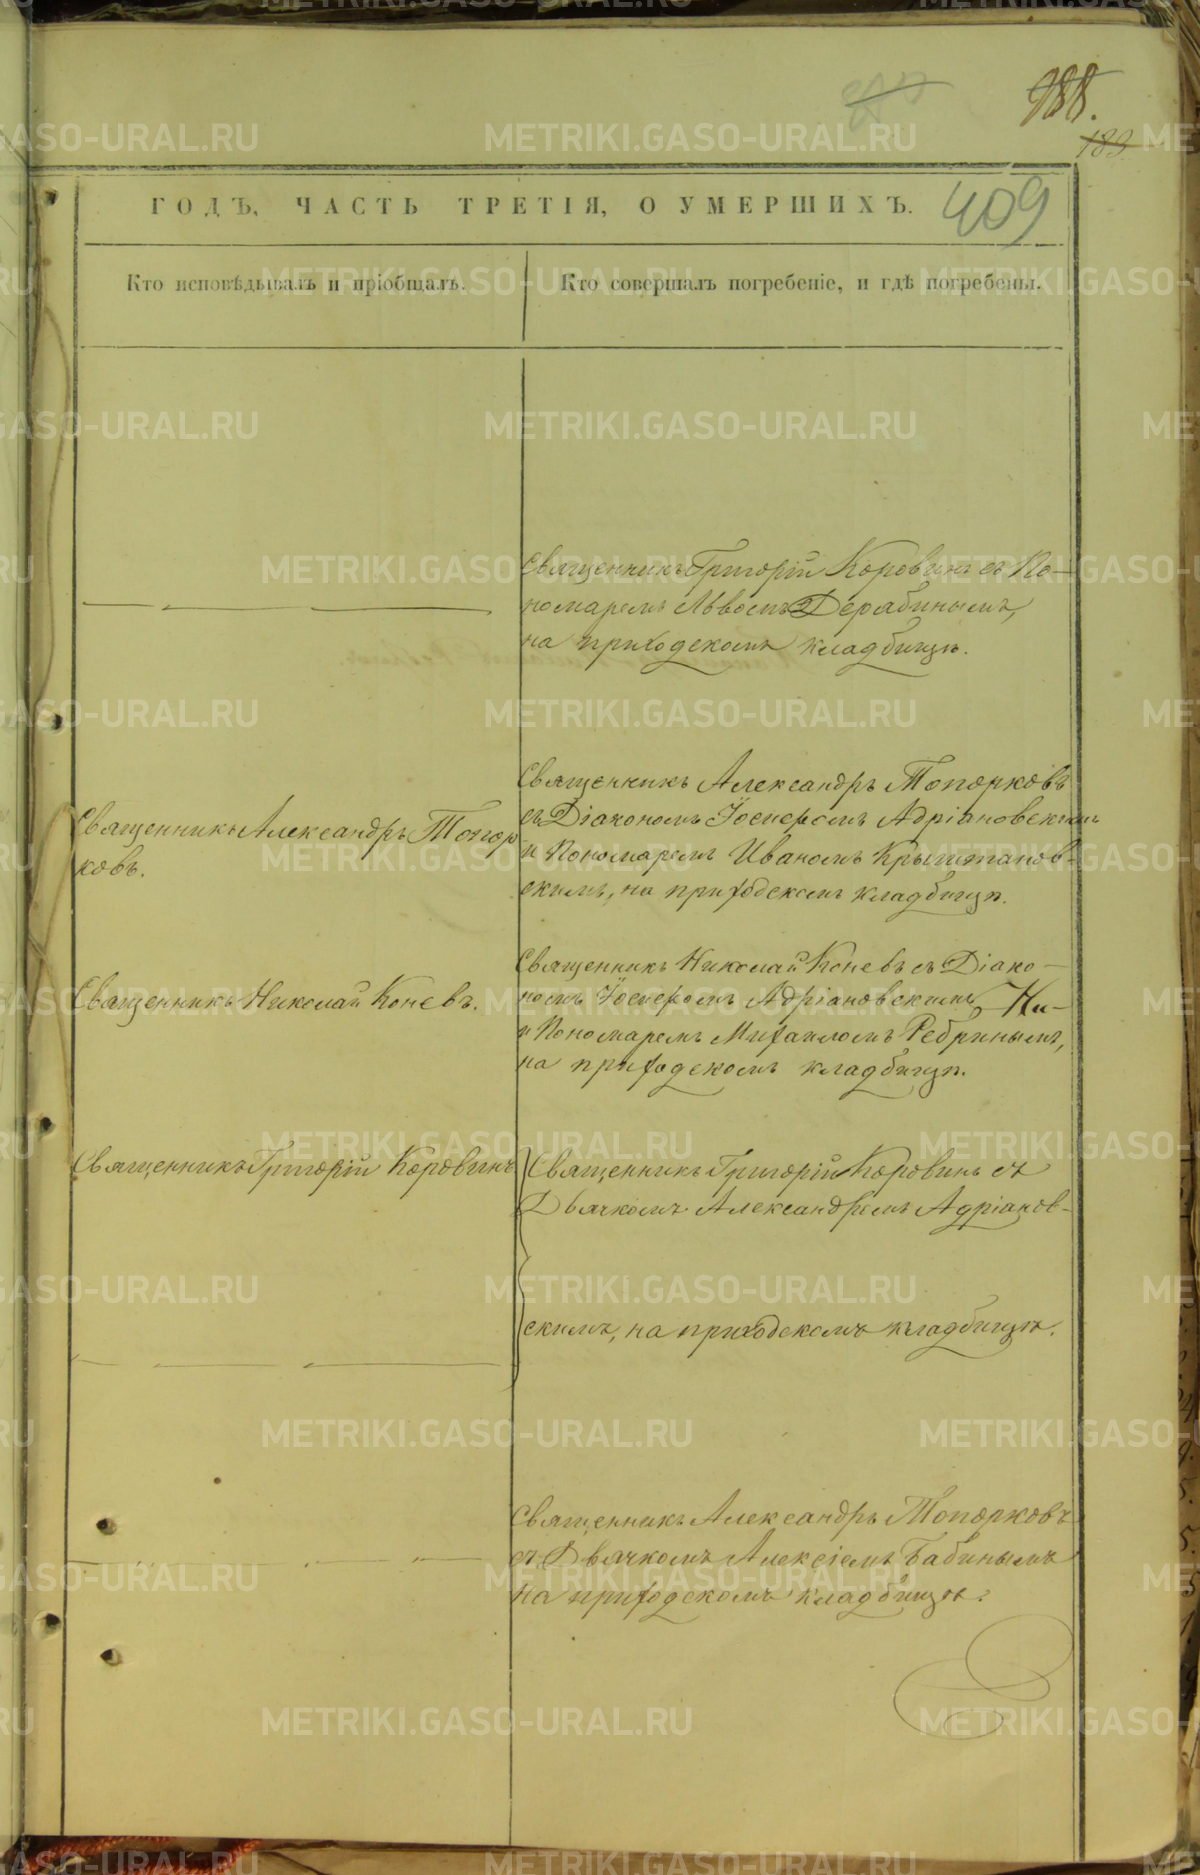 988.
189
ГОДЪ, ЧАСТЬ ТРЕТІЯ, О УМЕРШИХЪ.
409
Кто исповѣдывалъ и пріобщалъ.
Кто совершалъ погребеніе, и гдѣ погребены.
Священникъ Григорій Коровинъ съ По-
номаремъ Львомъ Дерябинымъ,
на приходскомъ кладбищѣ.
Священникъ Александръ Топор
ковъ.
Священникъ Александръ Топорковъ
съ Діакономъ Іосифомъ Адріановскимъ
и Пономаремъ Иваномъ Крыштанов-
скимъ, на приходскомъ кладбищѣ.
Священникъ Николай Коневъ.
Священникъ Николай Коневъ съ Діако-
номъ Іосифомъ Адріановскимъ
и Пономаремъ Михаиломъ Ребринымъ,
на приходскомъ кладбищѣ.
Священникъ Григорій Коровинъ
Священникъ Григорій Коровинъ съ
Дьячкомъ Александромъ Адріанов-
скимъ, на приходскомъ кладбищѣ.
Священникъ Александръ Топорковъ
съ Дьячкомъ Алексіемъ Бабинымъ
на приходскомъ кладбищѣ.
METRIKI.GASO-URAL.RU